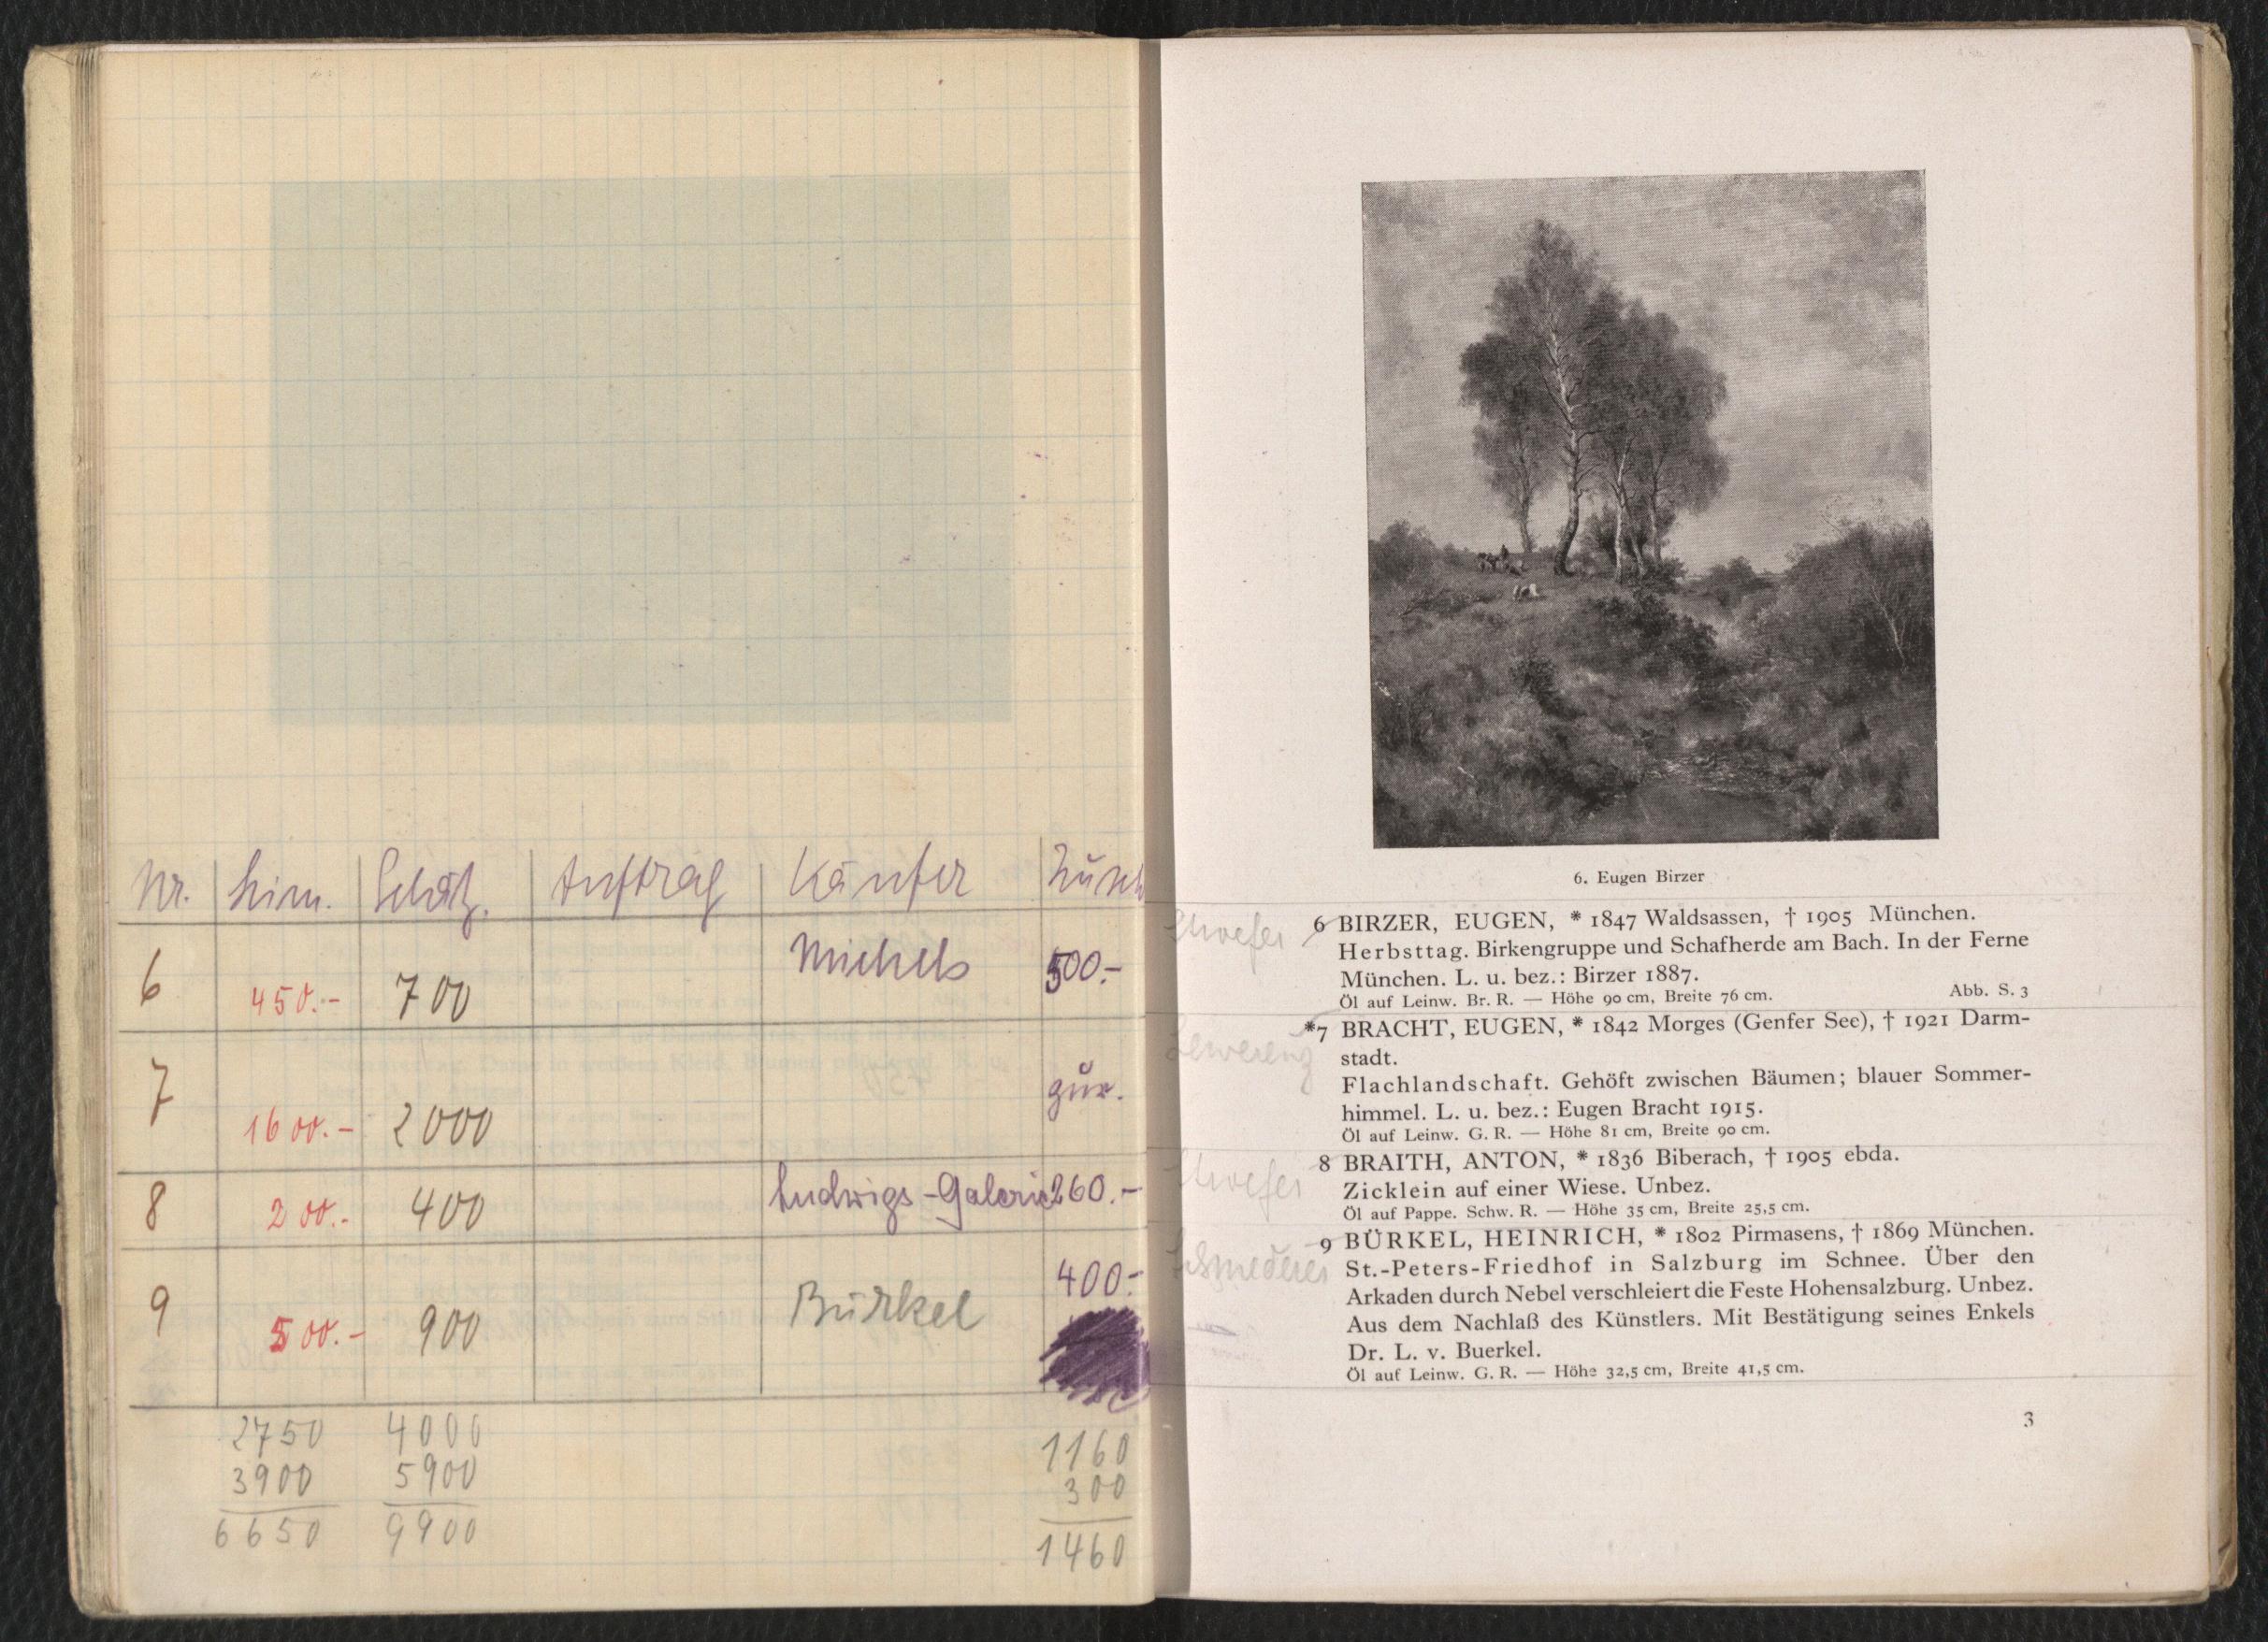 Nr. Lim. Schätz. Auftrag Käufer Zusch
6 450.- 700 Michels 500.-
7 1600.- 2000 zur.
8 200.- 400 Ludwigs-Galerie 260.-
9 500.- 900 Bürkel 400.-
2750 4000 1160
3900 5900 300
6650 9900 1460
6. Eugen Birzer
6 BIRZER, EUGEN, * 1847 Waldsassen, † 1905 München.
Herbsttag. Birkengruppe und Schafherde am Bach. In der Ferne
München. L. u. bez.: Birzer 1887.
Öl auf Leinw. Br. R. — Höhe 90 cm, Breite 76 cm. Abb. S. 3
*7 BRACHT, EUGEN, * 1842 Morges (Genfer See), † 1921 Darm-
stadt.
Flachlandschaft. Gehöft zwischen Bäumen; blauer Sommer-
himmel. L. u. bez.: Eugen Bracht 1915.
Öl auf Leinw. G. R. — Höhe 81 cm, Breite 90 cm.
8 BRAITH, ANTON, * 1836 Biberach, † 1905 ebda.
Zicklein auf einer Wiese. Unbez.
Öl auf Pappe. Schw. R. — Höhe 35 cm, Breite 25,5 cm.
9 BÜRKEL, HEINRICH, * 1802 Pirmasens, † 1869 München.
St.-Peters-Friedhof in Salzburg im Schnee. Über den
Arkaden durch Nebel verschleiert die Feste Hohensalzburg. Unbez.
Aus dem Nachlaß des Künstlers. Mit Bestätigung seines Enkels
Dr. L. v. Buerkel.
Öl auf Leinw. G. R. — Höhe 32,5 cm, Breite 41,5 cm.
3